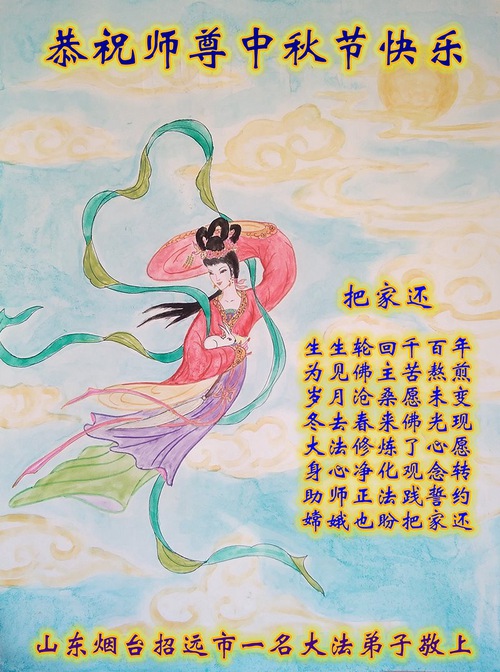 恭祝师尊中秋节快乐
把家还
生生轮回千百年
为见佛主苦熬煎
岁月沧桑愿未变
冬去春来佛光现
大法修炼了心愿
身心净化观念转
助师正法践誓约
嫦娥也盼把家还
山东烟台招远市一名大法弟子敬上